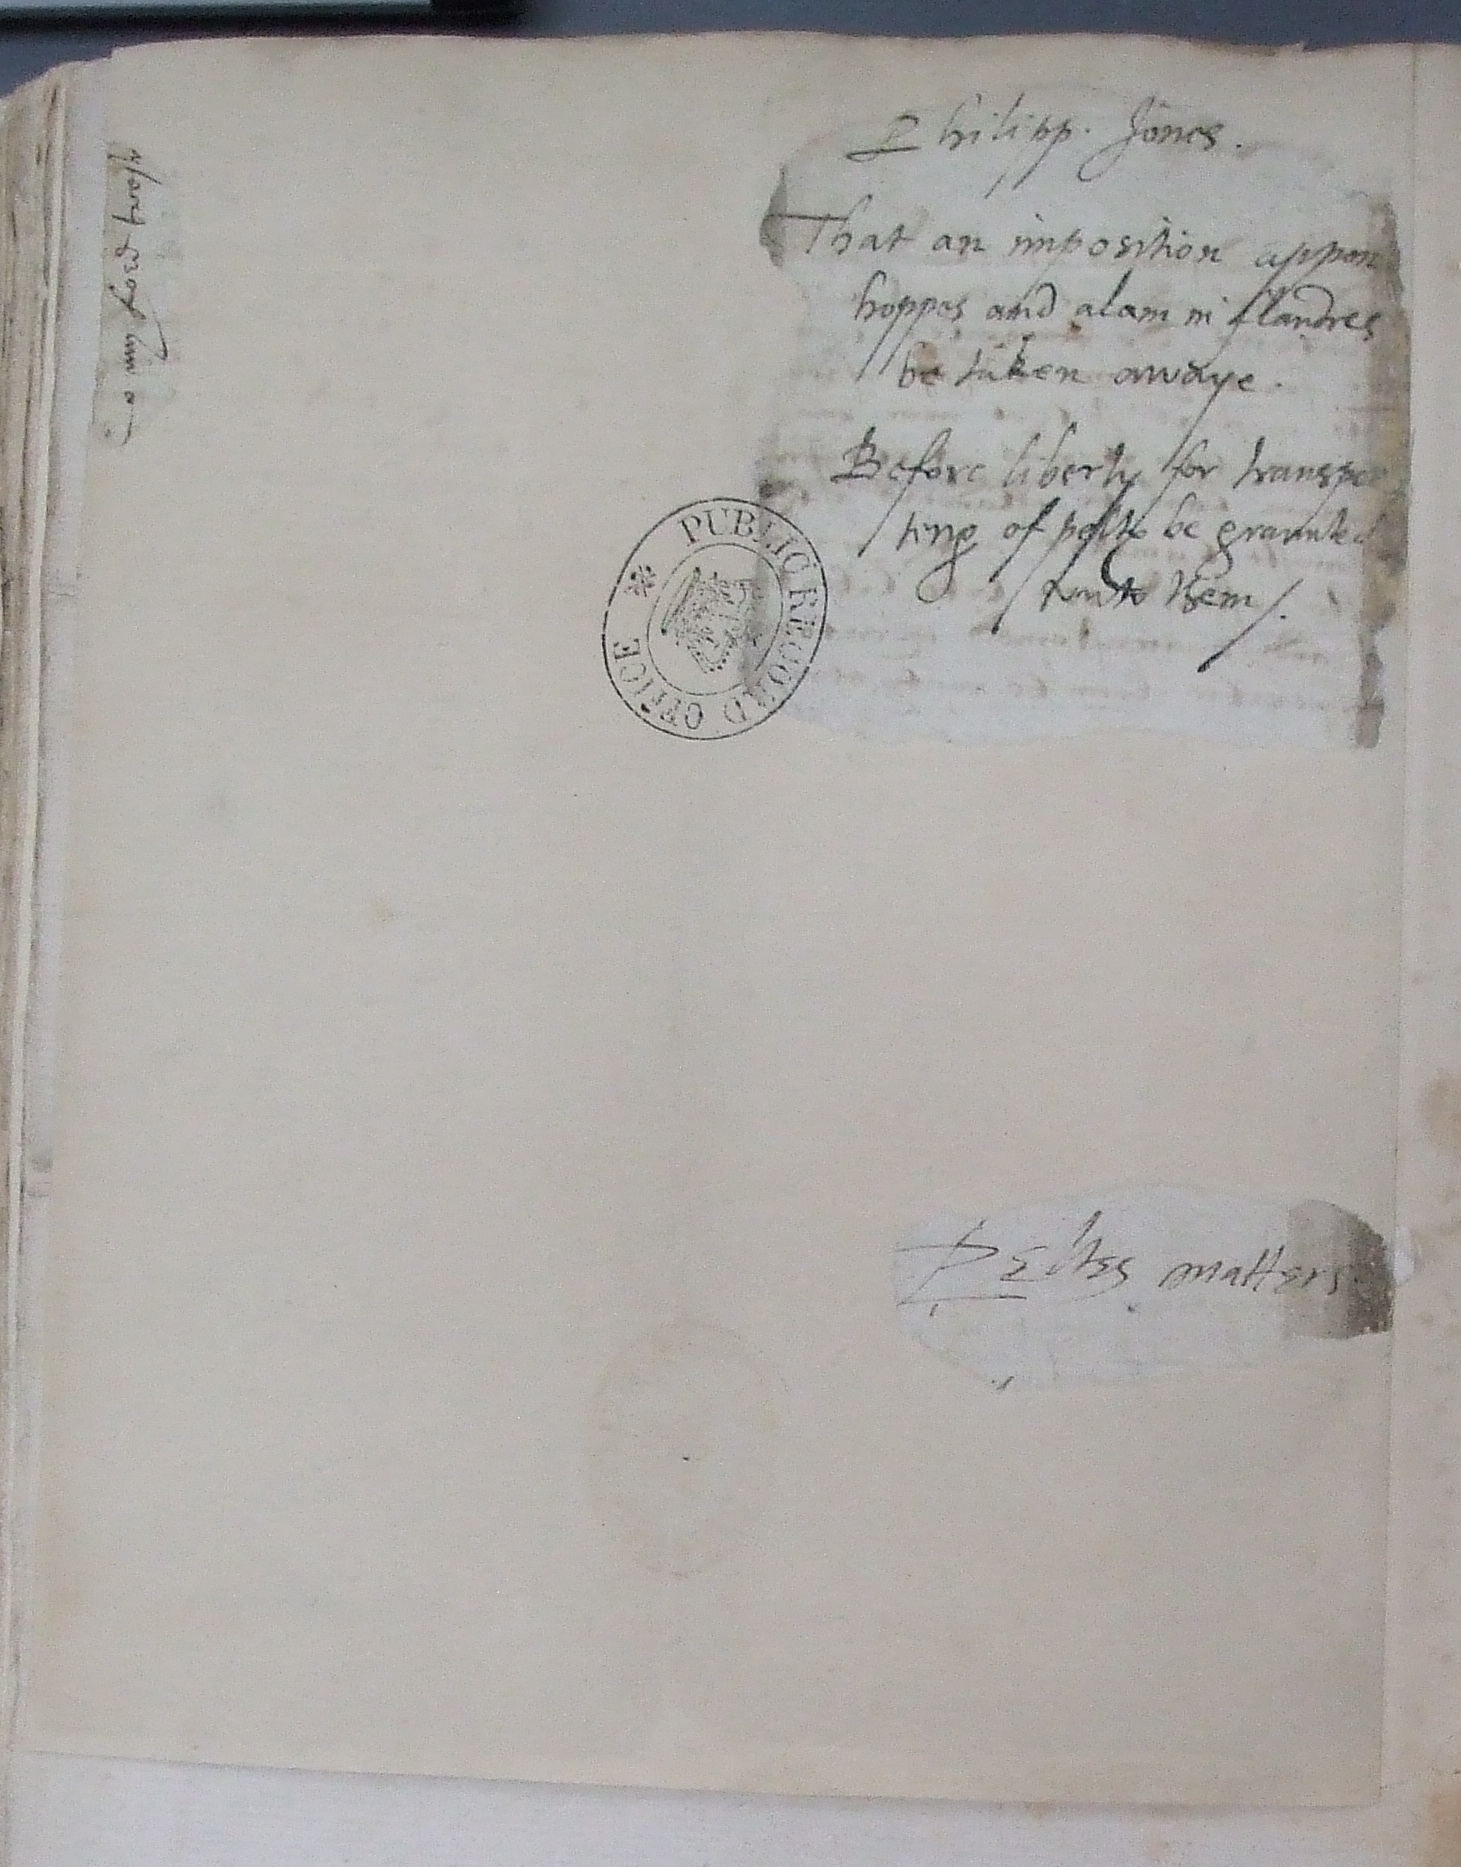 Philipp. Jones.
That an imposition appon
hoppes and alam in flandres
be taken awaye.
Before liberty for transpor
ting of pelts be graunted
unto them /.
PUBLIC RECORD OFFICE
Peltes matters
To my Lord